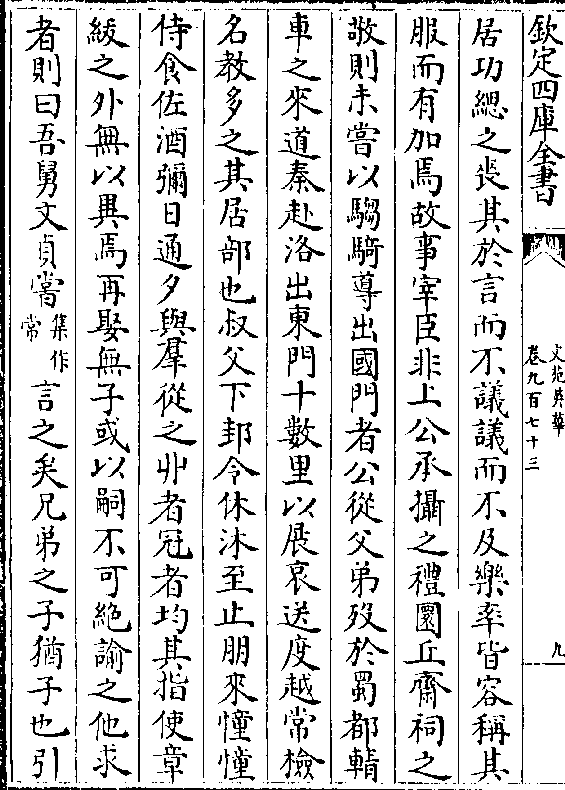 欽定四庫全書
文苑英華
卷九百七十三
九
居功緦之喪其於言而不議議而不及樂率皆容稱其
服而有加焉故事宰臣非上公承攝之禮圜丘齋祠之
敬則未嘗以騶騎導出國門者公從父弟歿於蜀都輤
車之來道秦赴洛出東門十數里以展哀送度越常檢
名教多之其居部也叔父下邽令休沐至止朋來憧憧
侍食佐酒彌日通夕與羣從之丱者冠者均其指使章
綾之外無以異焉再娶無子或以嗣不可絶諭之他求
者則曰吾舅文貞嘗集作常言之矣兄弟之子猶子也引